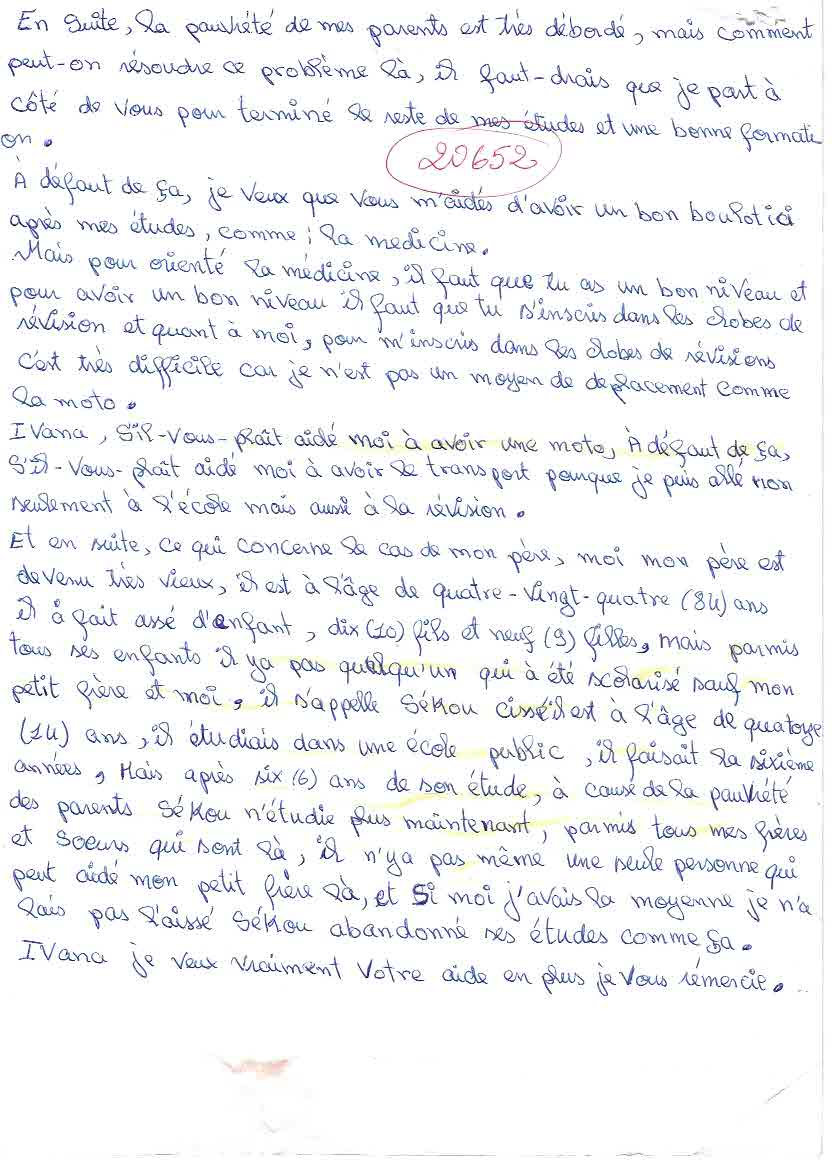 En suite, la pauvrété de mes parents est très débordé, mais comment
peut-on résoudre ce problème là, il faut-drais que je part à
côté de vous pour terminé le reste de mes études et une bonne formati
on.
20652
À défaut de ça, je veux que vous m'aidés d'avoir un bon boulot ici
après mes études, comme; la medicine.
Mais pour orienté la médicine, il faut que tu as un bon niveau et
pour avoir un bon niveau il faut que tu s'inscris dans les clobes de
révision et quant à moi, pour m'inscris dans les clobes de révisions
c'est très difficile car je n'est pas un moyen de deplacement comme
la moto.
IVana, S'il-Vous-plaît aidé moi à avoir une moto, À défaut de ça,
S'il-Vous-plaît aidé moi à avoir le transport pourque je puis allé non
seulement à l'école mais aussi à la révision.
Et en suite, ce qui concerne le cas de mon père, moi mon père est
devenu très vieux, il est à l'âge de quatre-vingt-quatre (84) ans
il à fait assé d'enfant, dix (10) fils et neuf (9) filles, mais parmis
tous ses enfants il ya pas quelqu'un qui à été scolarisé sauf mon
petit frère et moi, il s'appelle Sékou cissé il est à l'âge de quatoze
(14) ans, il étudiais dans une école public, il faisait la sixième
années, Mais après six (6) ans de son étude, à cause de la pauvrété
des parents Sékou n'étudie plus maintenant, parmis tous mes frères
et Soeurs qui sont là, il n'ya pas même une seule personne qui
peut aidé mon petit frère là, et Si moi j'avais la moyenne je n'a
lais pas l'aissé Sékou abandonné ses études comme ça.
IVana je veux vraiment Votre aide en plus je Vous rémercie.